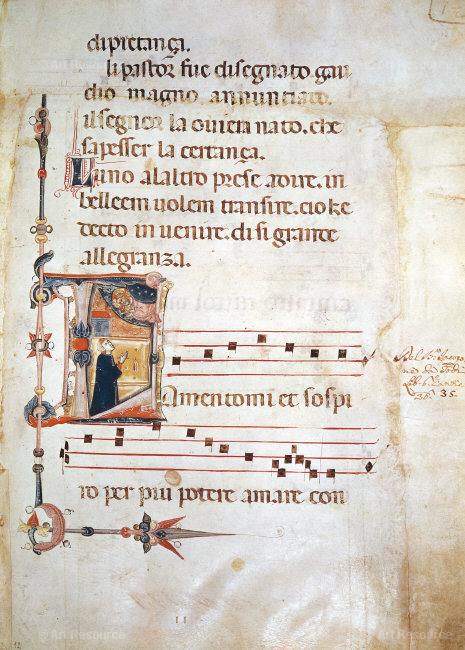 dipretança.
li pastor fue disegnato. gau
dio magno annunciato.
il segnor la ouiera nato. che
sapesser la certança.
Luno alaltro prese adire. in
belleem uolem transire. cio ke
decto in uenire. di si grande
allegranza.
Lamentomi et sospi
35.
ro per piu potere amare con
11
12
© Art Resource
Art Resource